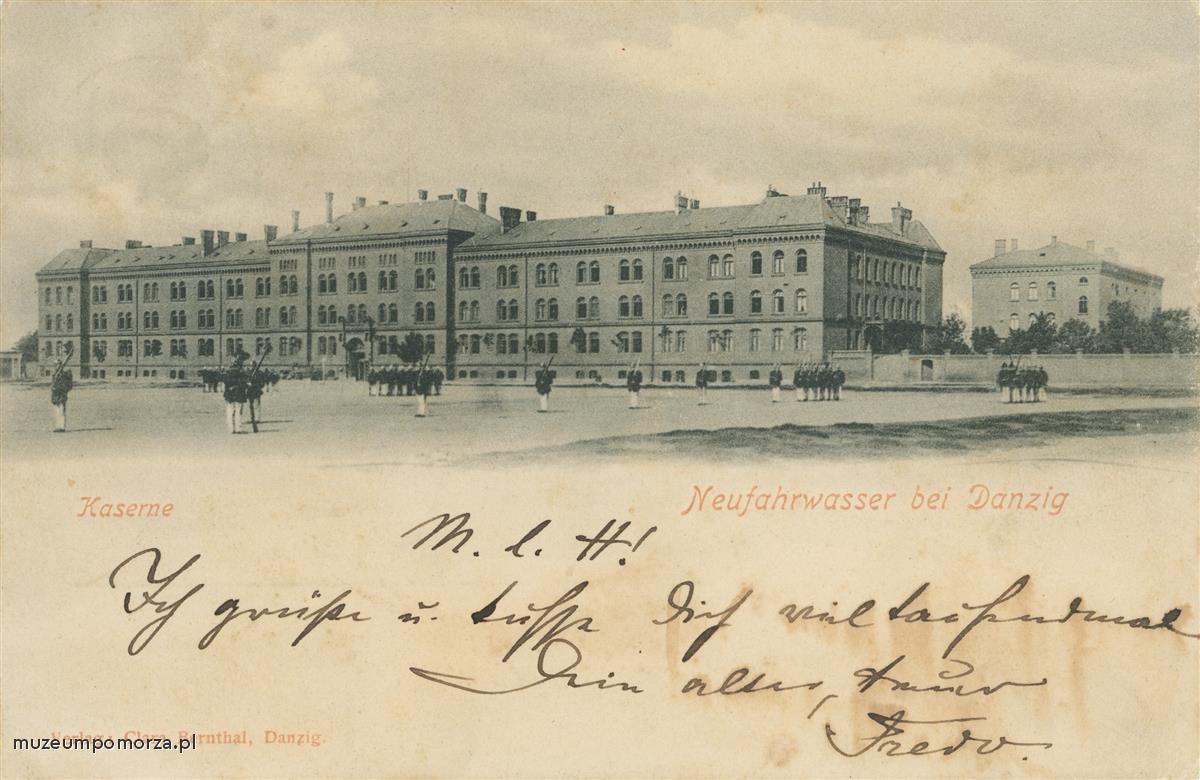 Kaserne
Neufahrwasser bei Danzig
M. l. H!
Ich grüße u. küsse Dich viel tausendmal
Dein alter, treuer
Fredo.
Verlag: Clara Bernthal, Danzig.
muzeumpomorza.pl